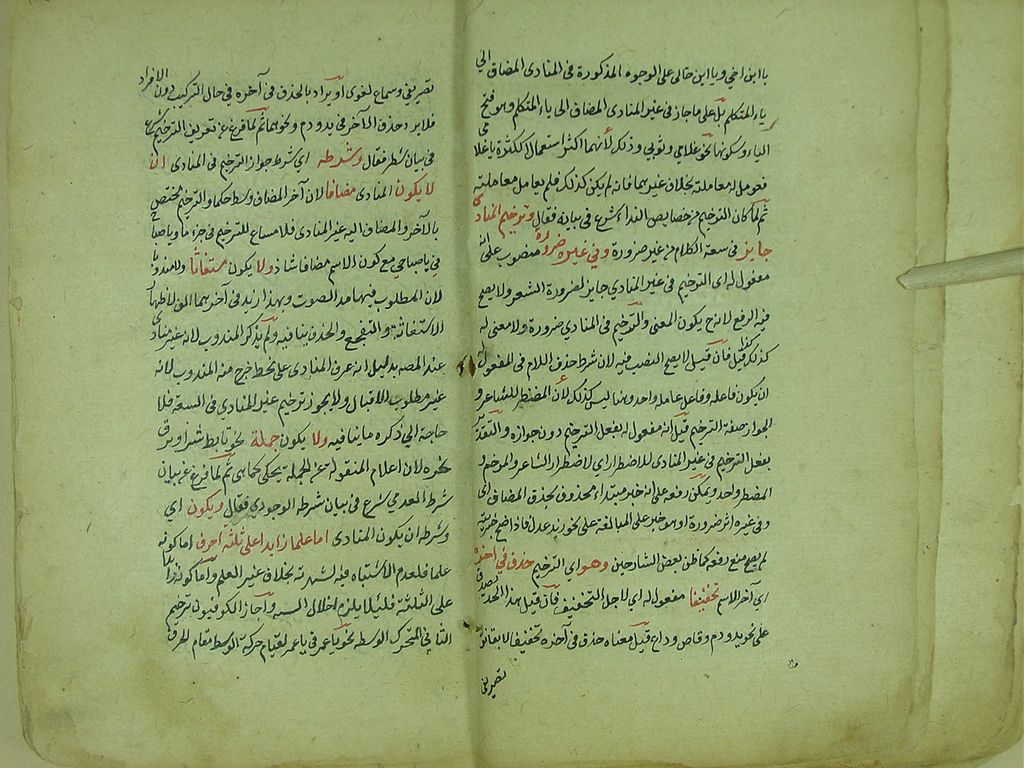 يا ابن اخي ويا ابن خالي على الوجوه المذكورة في المنادى المضاف الى
ياء المتكلم بل على ما جاز في غير المنادى المضاف الى ياء المتكلم وهو فتح
الياء وسكونها نحو غلامي وثوبي وذلك لانهما اكثر استعمالا لكثرة
فعومل له معاملته بخلاف غيرهما فانه لم يكن كذلك فلم يعامل معاملته
ثم لما كان الترخيم من خصايص النداء شرع في بيانه فقال وترخيم المنادى
جايز في سعة الكلام من غير ضرورة وفي غيره ضرورة منصوب على انه
مفعول له اى الترخيم في غير المنادى جايز لضرورة الشعر ولا يصح
فيه الرفع لانه ح يكون المعنى والترخيم في المنادى ضرورة ولا معنى له
كذا قيل فان قيل لا يصح النصب فيه لان شرط حذف اللام في المفعول له
ان يكون فاعله وفاعل عامله واحد وههنا ليس كذلك لان المضطر للشاعر و
الجواز صفة الترخيم قيل انه مفعول له بفعل الترخيم دون جوازه والتقدير
بفعل الترخيم في غير المنادى للاضطرار اى لاضطرار الشاعر والمرخم و
المضطر واحد ويمكن رفعه على انه خبر مبتداء محذوف بحذف المضاف اى
وفي غيره اثر ضرورة او هو خبر على المبالغة على نحو زيد عدل فاذا صح خبريته
لم يصح منع رفعه كما ظن بعض الشارحين وهو اي الترخيم حذف في اخره
اي آخر الاسم تخفيفا مفعول له اي لاجل التخفيف فان قيل هذا الحد يصدق
على نحو يد ودم وقاض وداع قيل معناه حذف في آخره تخفيفا لا بقانون
تصريفي
تصريفي وسماع لغوى او يراد بالحذف في آخره في حال التركيب دون الافراد
فلا يرد حذف الآخر في يد ودم ونحوهما ثم لما فرغ عن تعريف الترخيم شرع
في بيان شرطه فقال وشرطه اي شرط جواز الترخيم في المنادى ان
لا يكون المنادى مضافا لان آخر المضاف وسط حكما والترخيم مختص
بالآخر والمضاف اليه غير المنادى فلا مساغ للترخيم في جزء ما ويا صاح
في يا صاحبي مع كون الاسم مضافا شاذ ولا يكون مستغاثا ولا مندوبا
لان المطلوب فيهما مد الصوت ولهذا زيد في آخرهما الف لاظهار
الاستغاثة والتفجع والحذف ينافيه ولم يذكر المندوب لانه غير منادى
عند المصه بدليل انه عرف المنادى على نمط خرج منه المندوب لانه
غير مطلوب الاقبال ولا يجوز ترخيم غير المنادى في السعة فلا
حاجة الى ذكره ما ينافيه ولا يكون جملة نحو تابط شرا وبرق
نحره لان اعلام المنقولة عن الجملة يحكى كما هي ثم لما فرغ عن بيان
شرط العدمي شرع في بيان شرطه الوجودي فقال ويكون اي
وشرطه ان يكون المنادى اما علما زايدا على ثلثة احرف اما كونه
علما فلعدم الاشتباه فيه لشهرته بخلاف غير العلم واما كونه زايدا
على الثلثة فليلا يلزم اخلال البنية واجاز الكوفيون ترخيم
الثلاثي المتحرك الوسط نحو يا عم في يا عمر لقيام حركة الوسط مقام الحرف